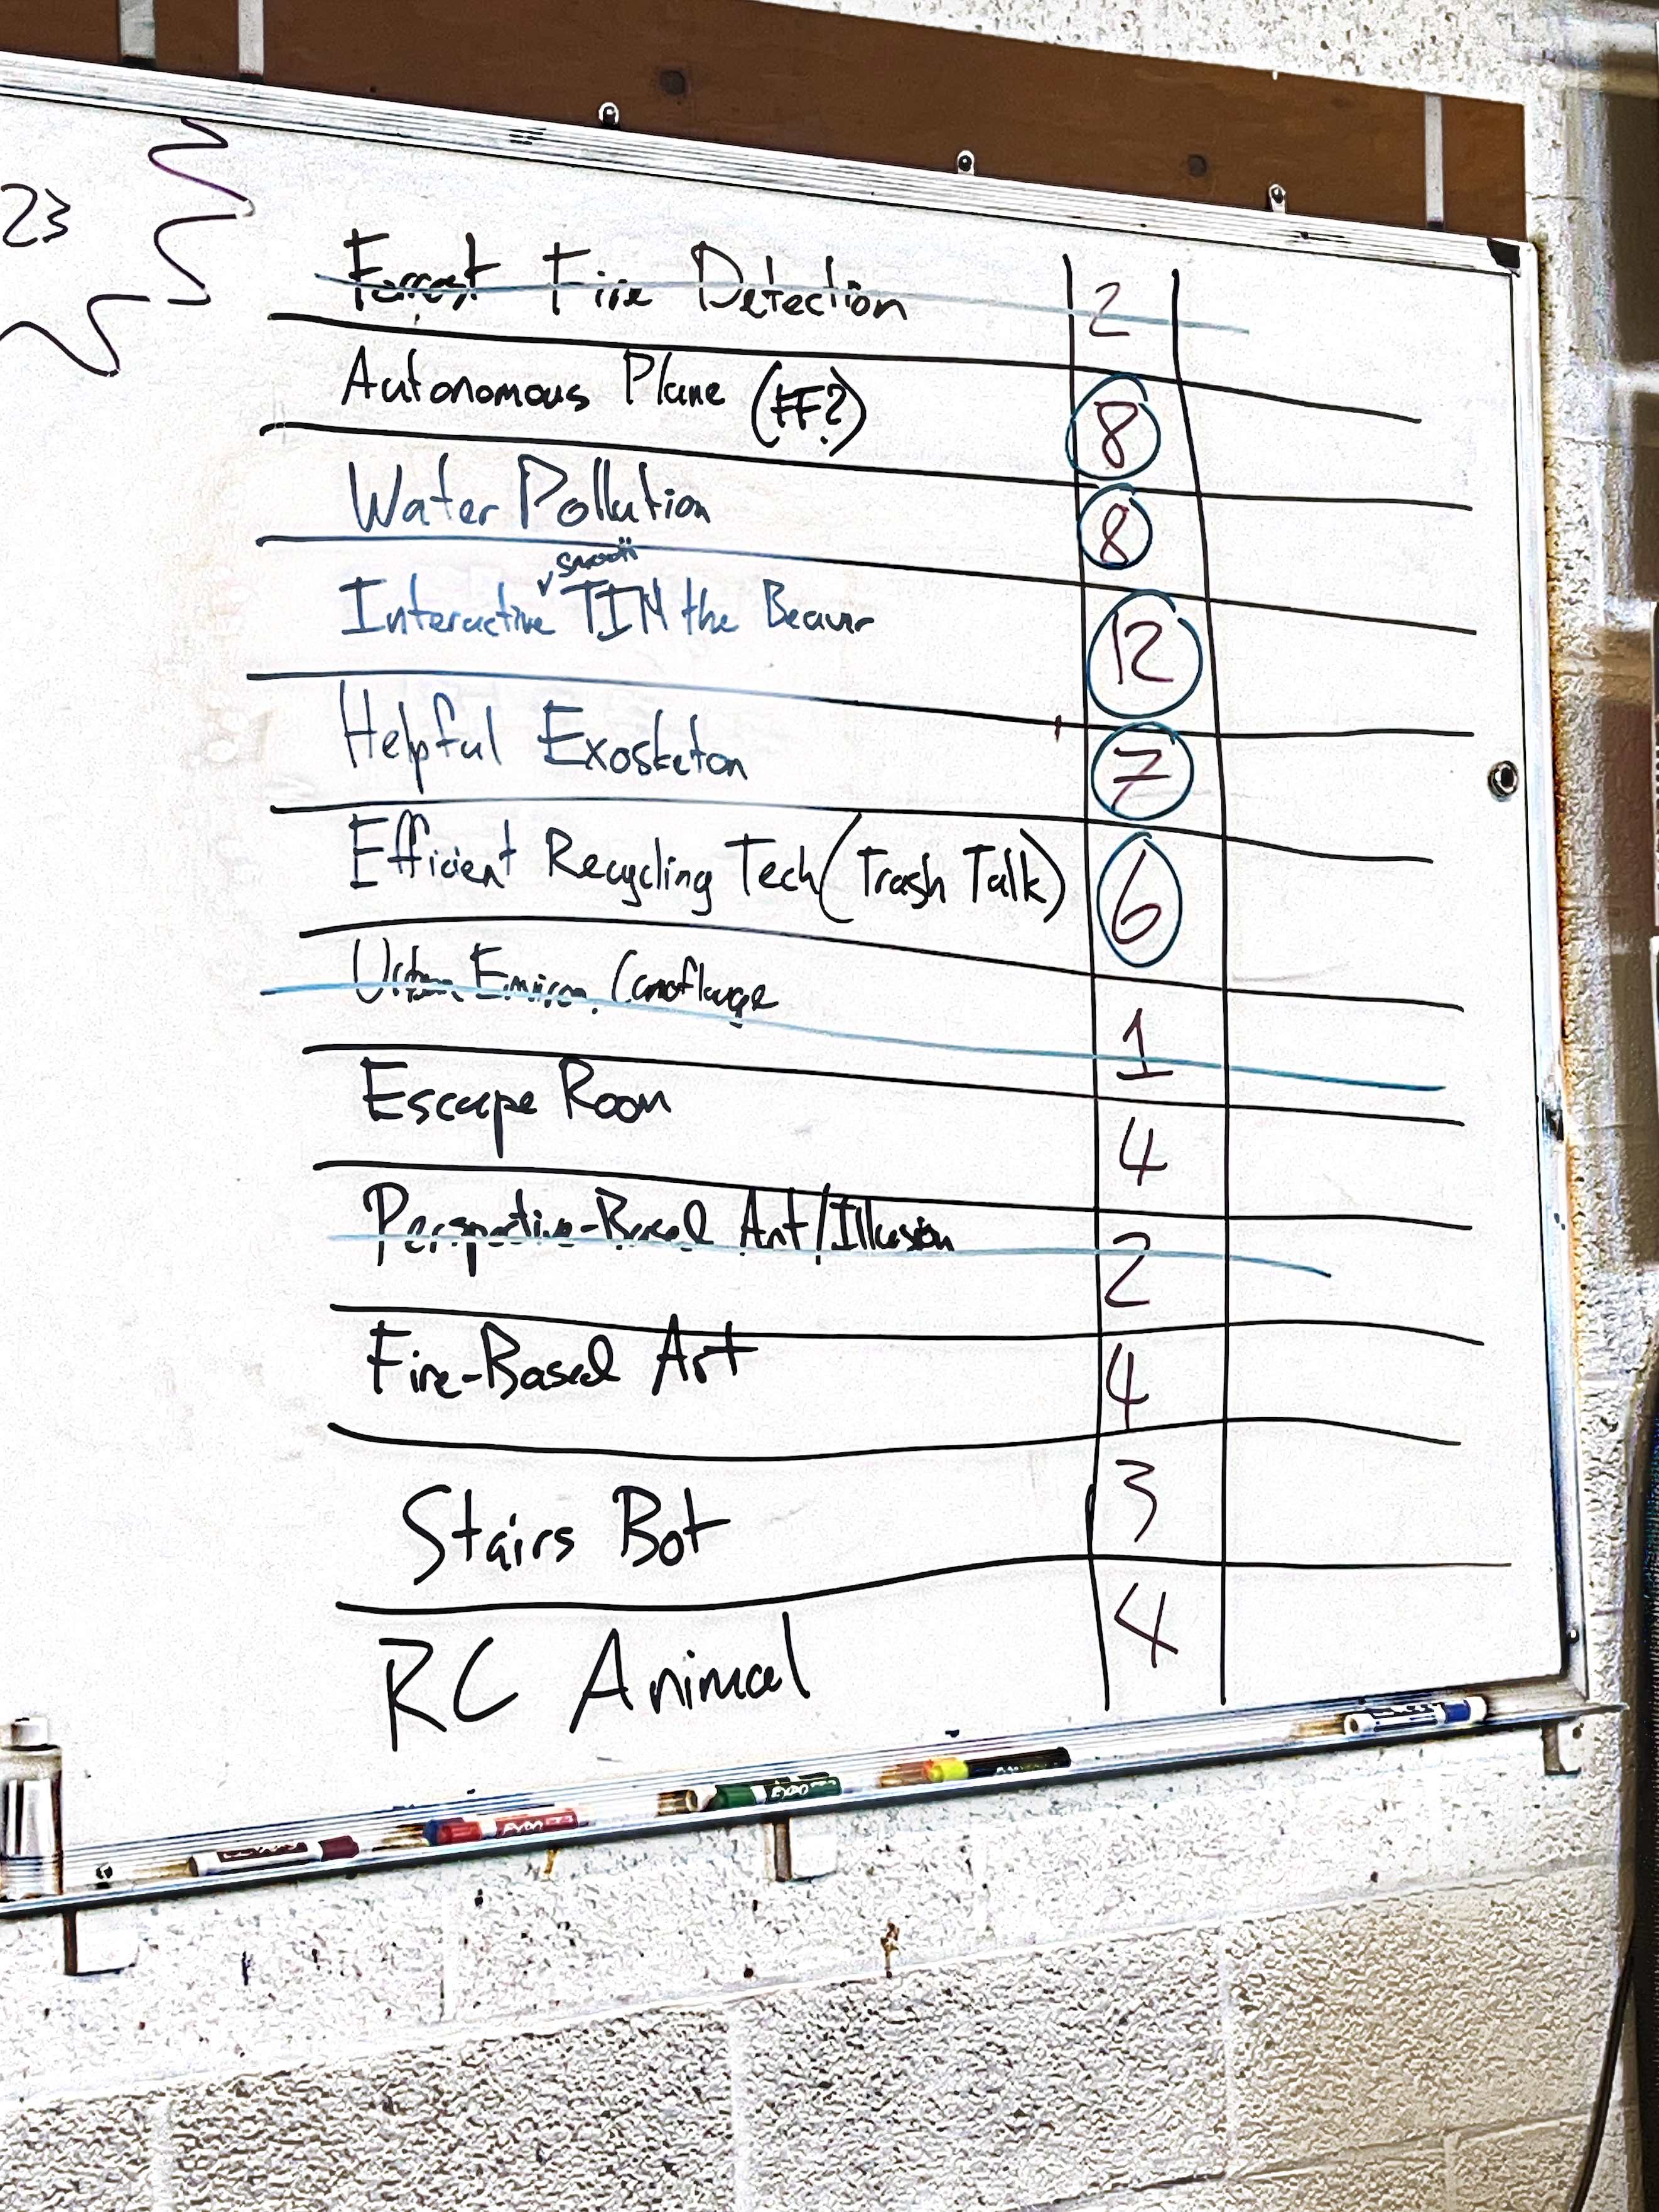 23
Forrest Fire Detection 2
Autonomous Plane (FF?) 8
Water Pollution 8
smooth
Interactive TIM the Beaver 12
Helpful Exosketon 7
Efficient Recycling Tech (Trash Talk) 6
Urban Environ. Camoflauge 1
Escape Room 4
Perspective-Based Art/Illusion 2
Fire-Based Art 4
Stairs Bot 3
RC Animal 4
EXPO